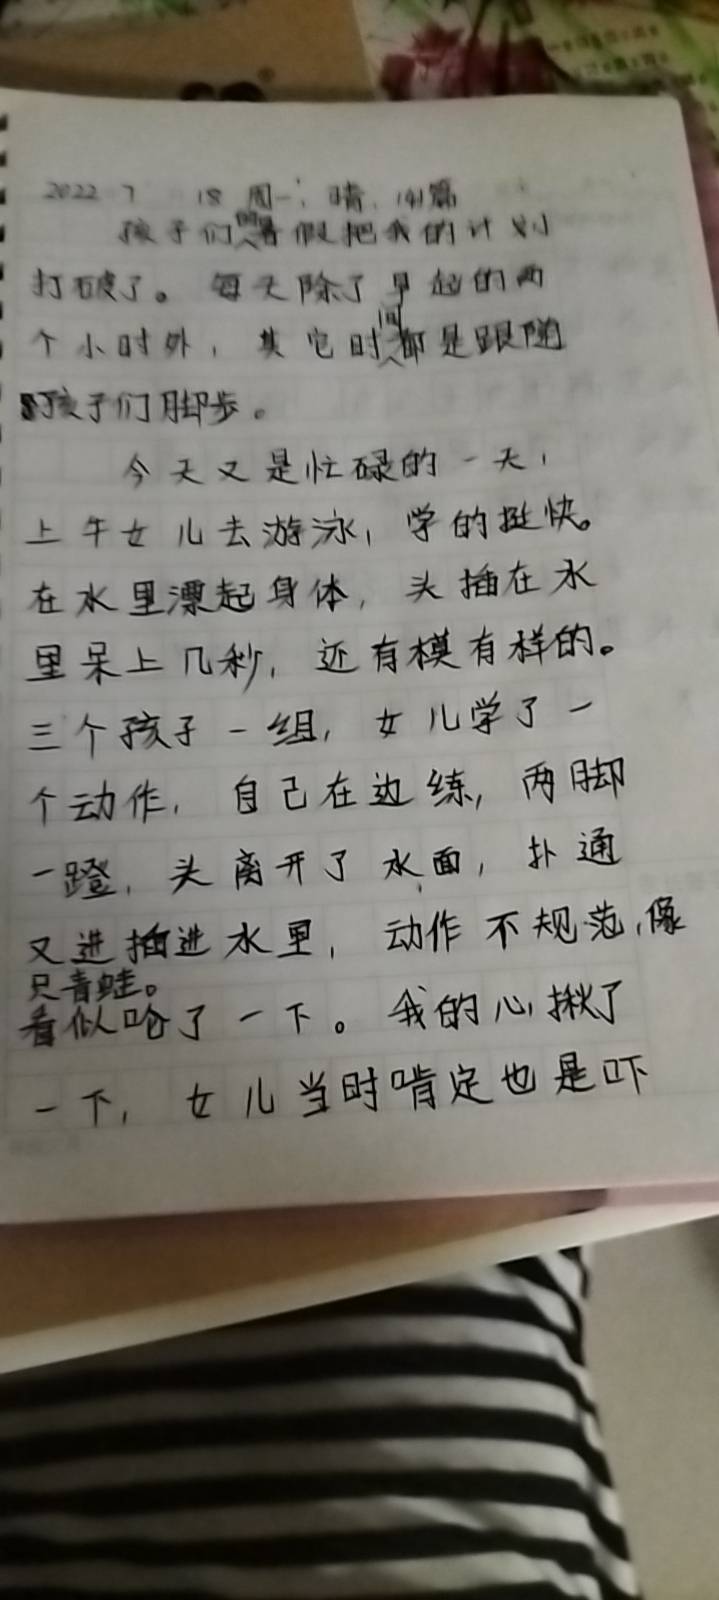 2022 7 18 周一, 晴, 141篇
孩子们的暑假把我的计划
打破了。每天除了早起的两
个小时外, 其它时间都是跟随
孩子们脚步。
今天又是忙碌的一天,
上午女儿去游泳, 学的挺快。
在水里漂起身体, 头插在水
里呆上几秒, 还有模有样的。
三个孩子一组, 女儿学了一
个动作, 自己在边练, 两脚
一蹬, 头离开了水面, 扑通
又进插进水里, 动作不规范, 像
只青蛙。
看似呛了一下。我的心揪了
一下, 女儿当时啃定也是吓